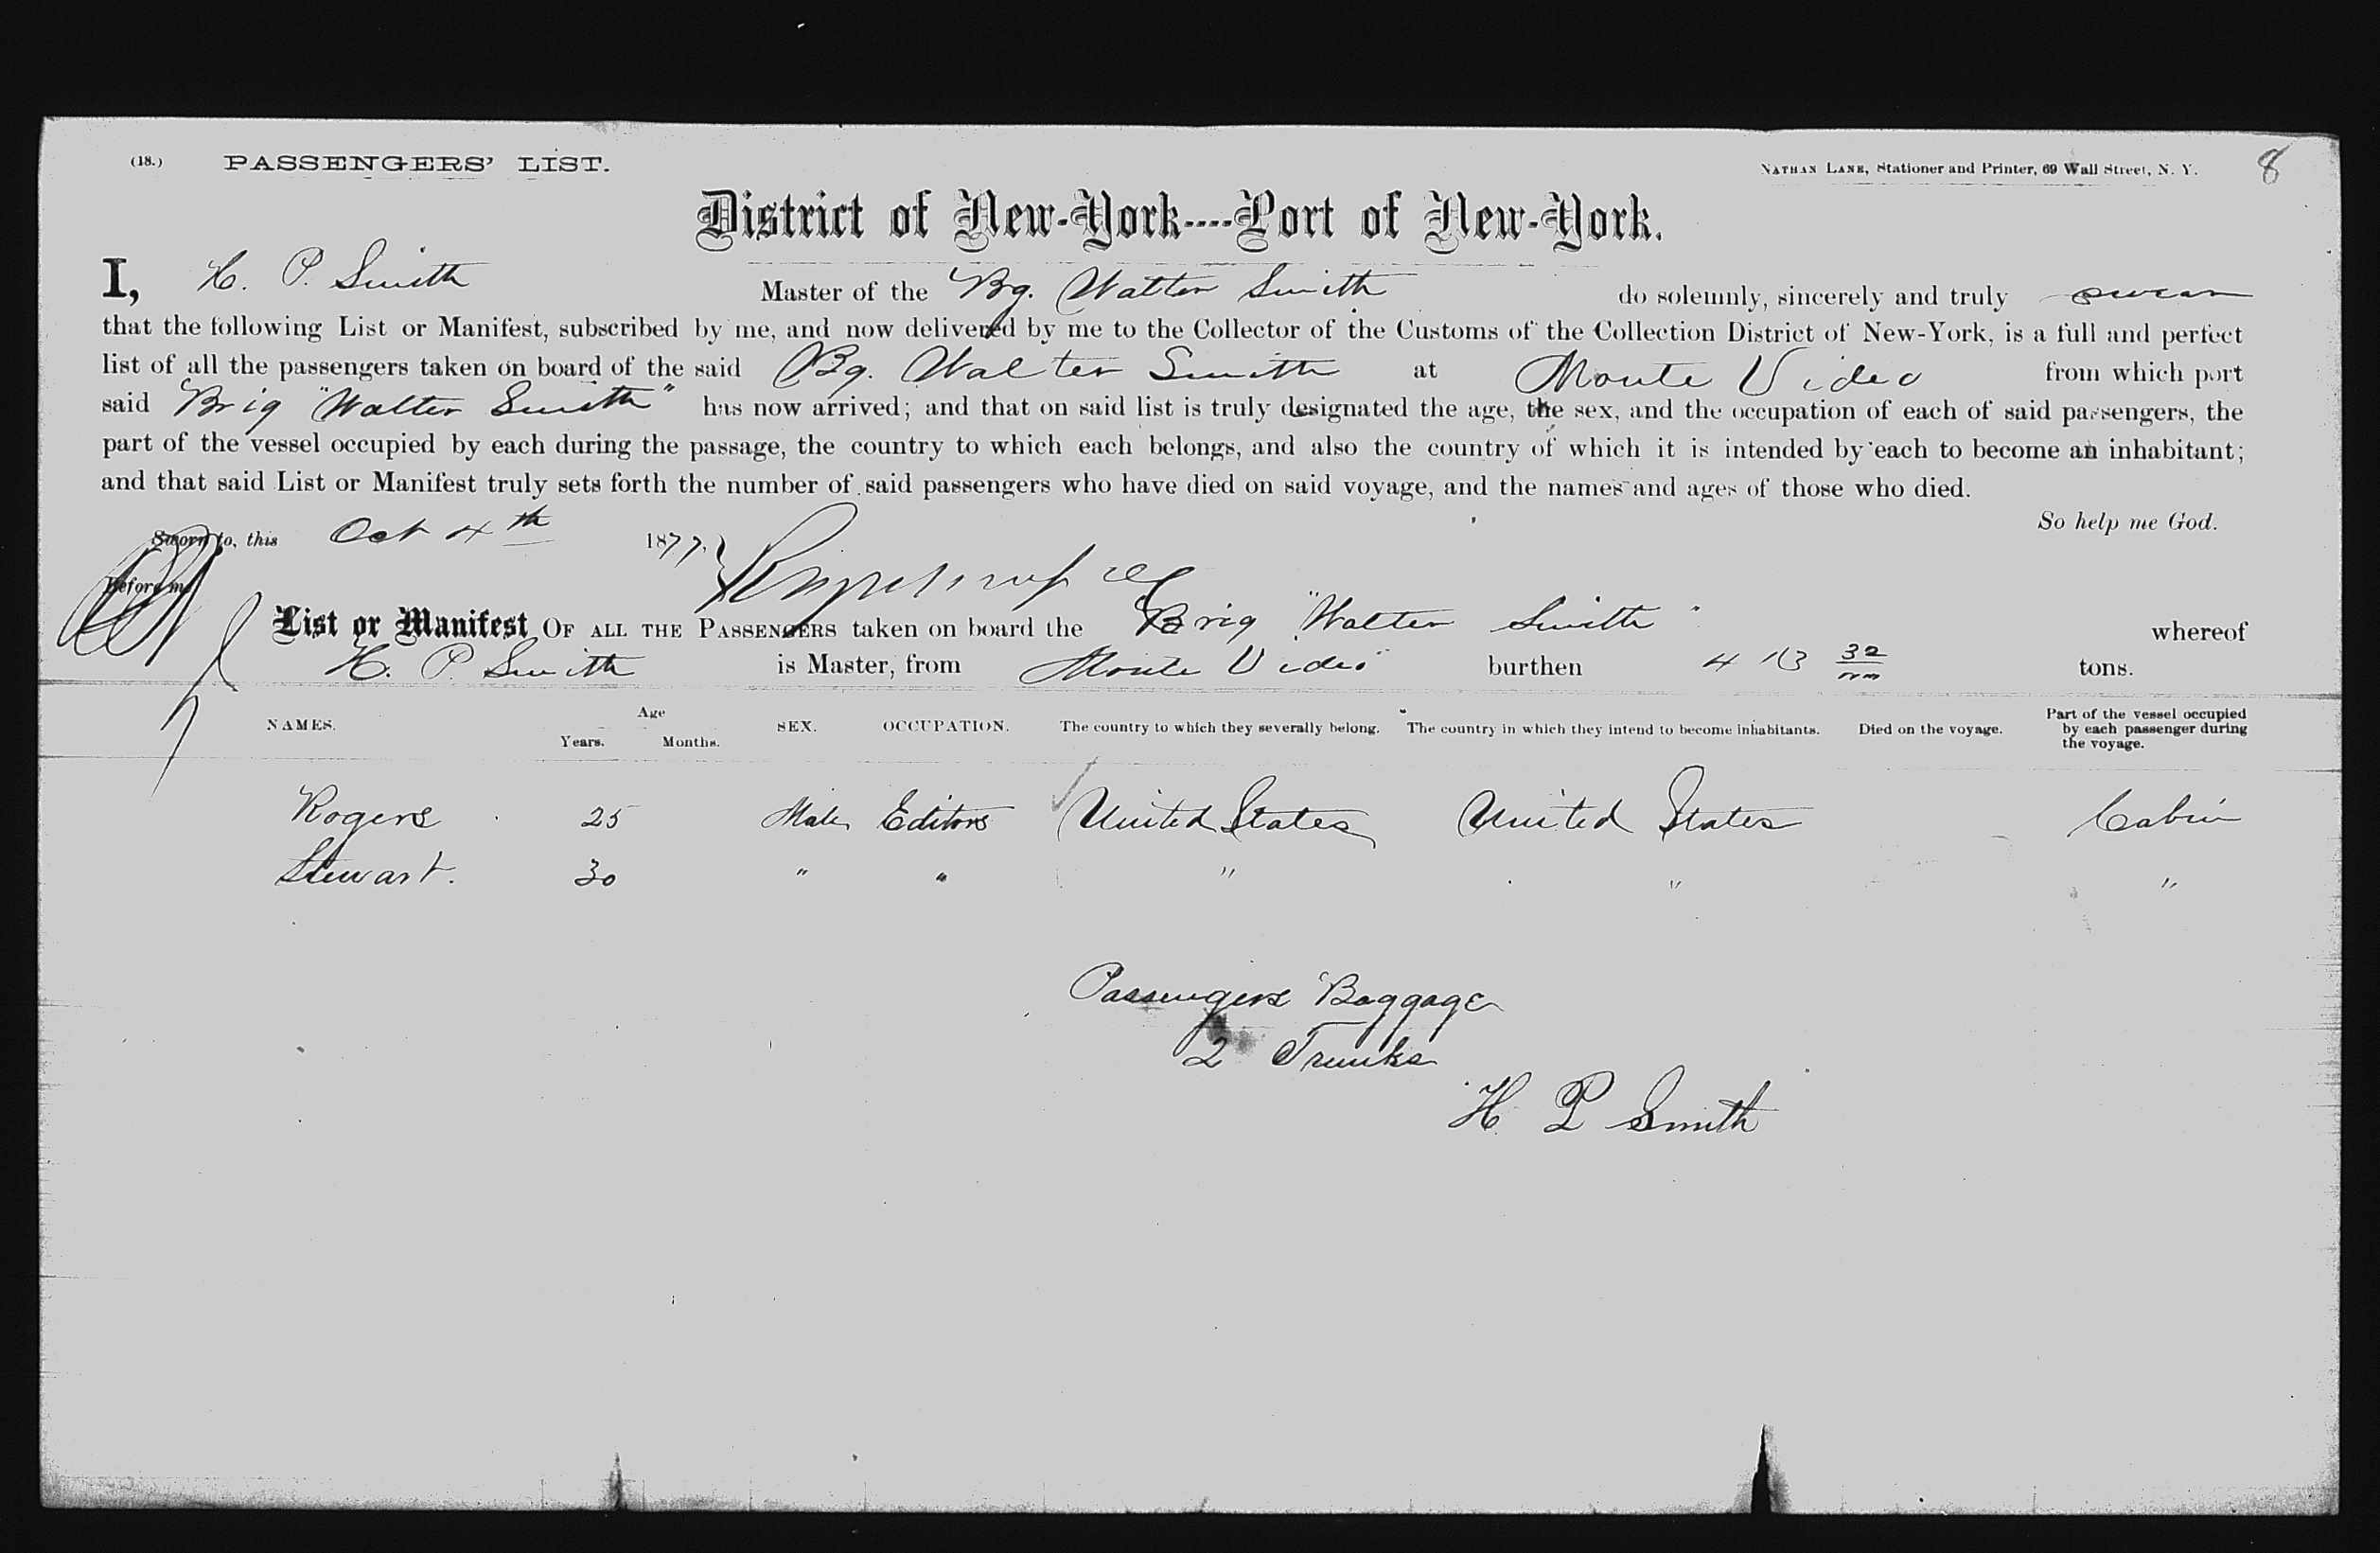 (18.) PASSENGERS' LIST. NATHAN LANE, Stationer and Printer, 69 Wall Street, N. Y. 8
District of New-York----Port of New-York.
I, H. P. Smith Master of the Bg. Walter Smith do solemnly, sincerely and truly swear
that the following List or Manifest, subscribed by me, and now delivered by me to the Collector of the Customs of the Collection District of New-York, is a full and perfect
list of all the passengers taken on board of the said Bg. Walter Smith at Monte Video from which port
said Brig "Walter Smith" has now arrived; and that on said list is truly designated the age, the sex, and the occupation of each of said passengers, the
part of the vessel occupied by each during the passage, the country to which each belongs, and also the country of which it is intended by each to become an inhabitant;
and that said List or Manifest truly sets forth the number of said passengers who have died on said voyage, and the names and ages of those who died.
So help me God.
Sworn to, this Oct 4th 1877.
Before me
List or Manifest OF ALL THE PASSENGERS taken on board the Brig "Walter Smith" whereof
H. P. Smith is Master, from Monte Video burthen tons.
NAMES. Age Years. Months. SEX. OCCUPATION. The country to which they severally belong. The country in which they intend to become inhabitants. Died on the voyage. Part of the vessel occupied by each passenger during the voyage.
Rogers 25 Male Editors United States United States Cabin
Stewart. 30 " " " " "
Passengers Baggage
2 Trunks
H P Smith